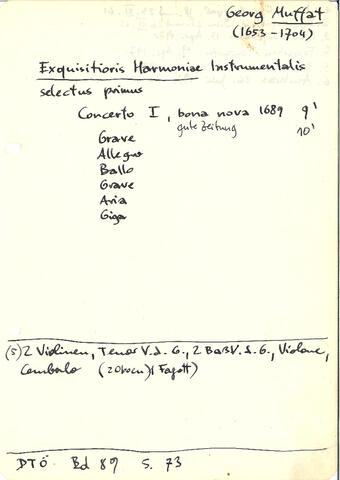 Georg Muffat
(1653-1704)
Exquisitioris Harmoniae Instrumentalis
selectus primus
Concerto I, bona nova 1689 9'
gute Zeitung 10'
Grave
Allegro
Ballo
Grave
Aria
Giga
(5) 2 Violinen, Tenor V.d.G., 2 Baß V.d.G., Violone,
Cembalo (2 Oboen, 1 Fagott)
DTÖ Bd 89 S. 73